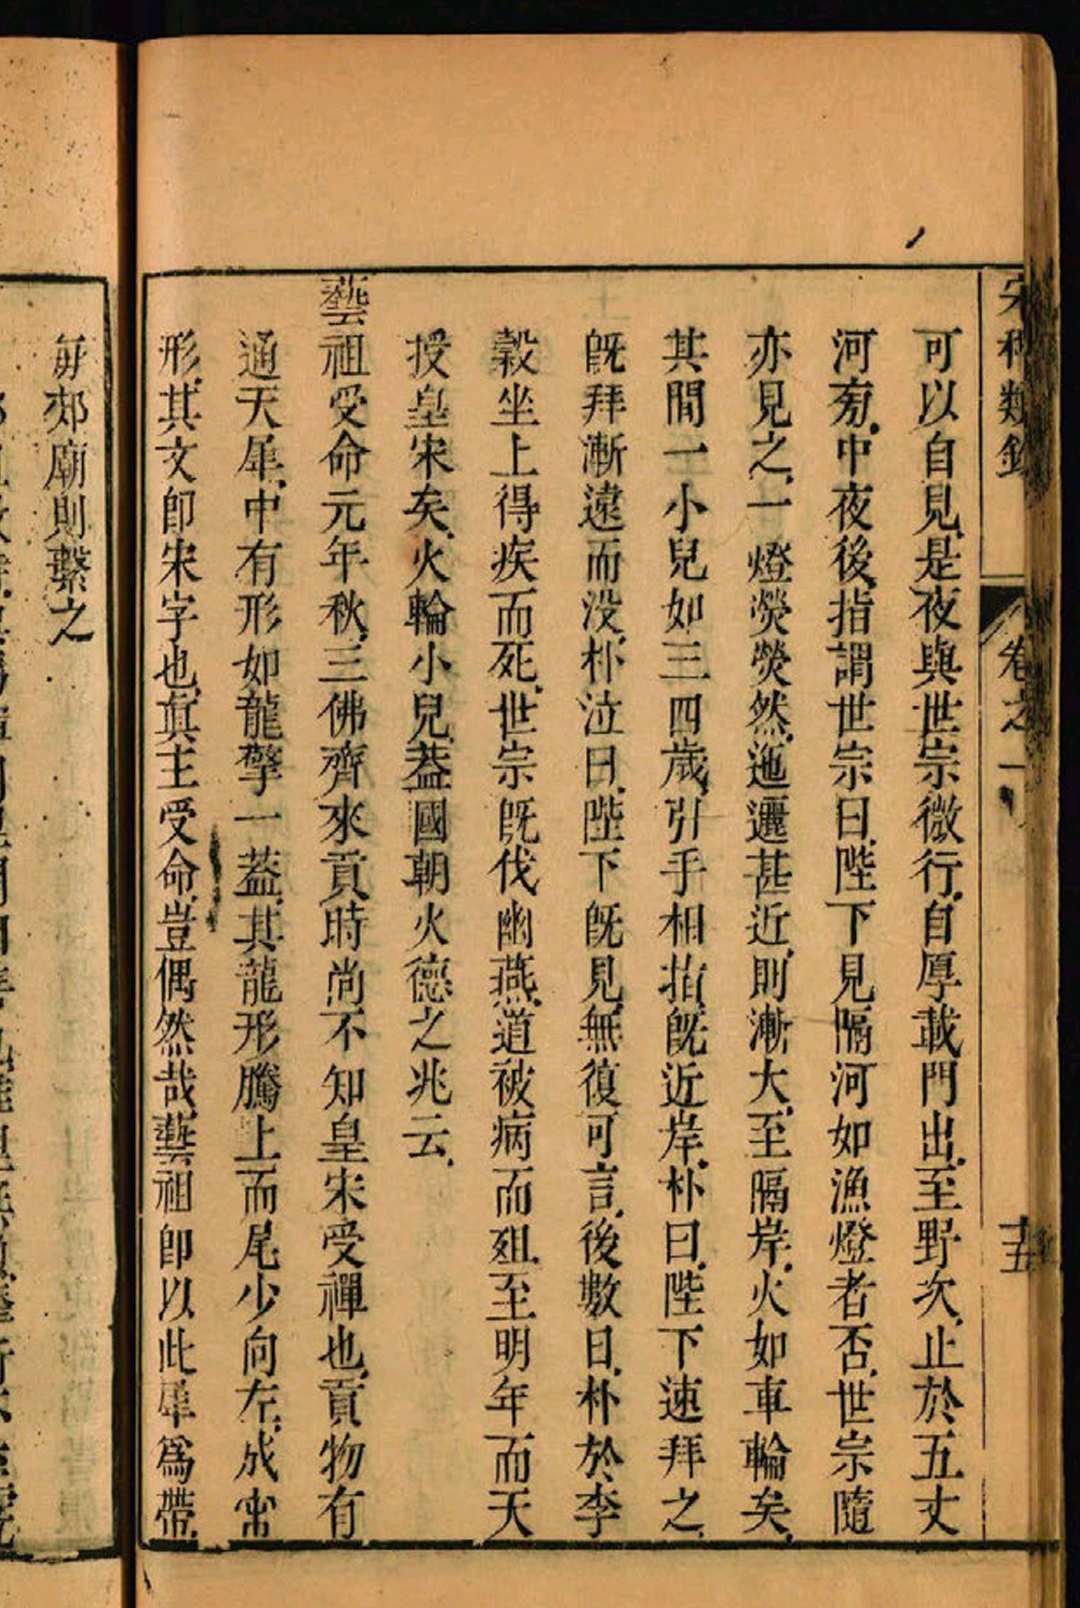 宋稗類鈔 卷之一 十五
可以自見是夜與世宗微行自厚載門出至野次止於五丈
河旁中夜後指謂世宗曰陛下見隔河如漁燈者否世宗隨
亦見之一燈熒熒然迤邐甚近則漸大至隔岸火如車輪矣
其間一小兒如三四歲引手相指旣近岸朴曰陛下速拜之
旣拜漸遠而没朴泣曰陛下旣見無復可言後數日朴於李
穀坐上得疾而死世宗旣伐幽燕道被病而殂至明年而天
授皇宋矣火輪小兒葢國朝火德之兆云
藝祖受命元年秋三佛齊來貢時尚不知皇宋受禪也貢物有
通天犀中有形如龍擎一葢其龍形騰上而尾少向左成宋
形其文卽宋字也眞主受命豈偶然哉藝祖卽以此犀爲帶
每郊廟則繫之